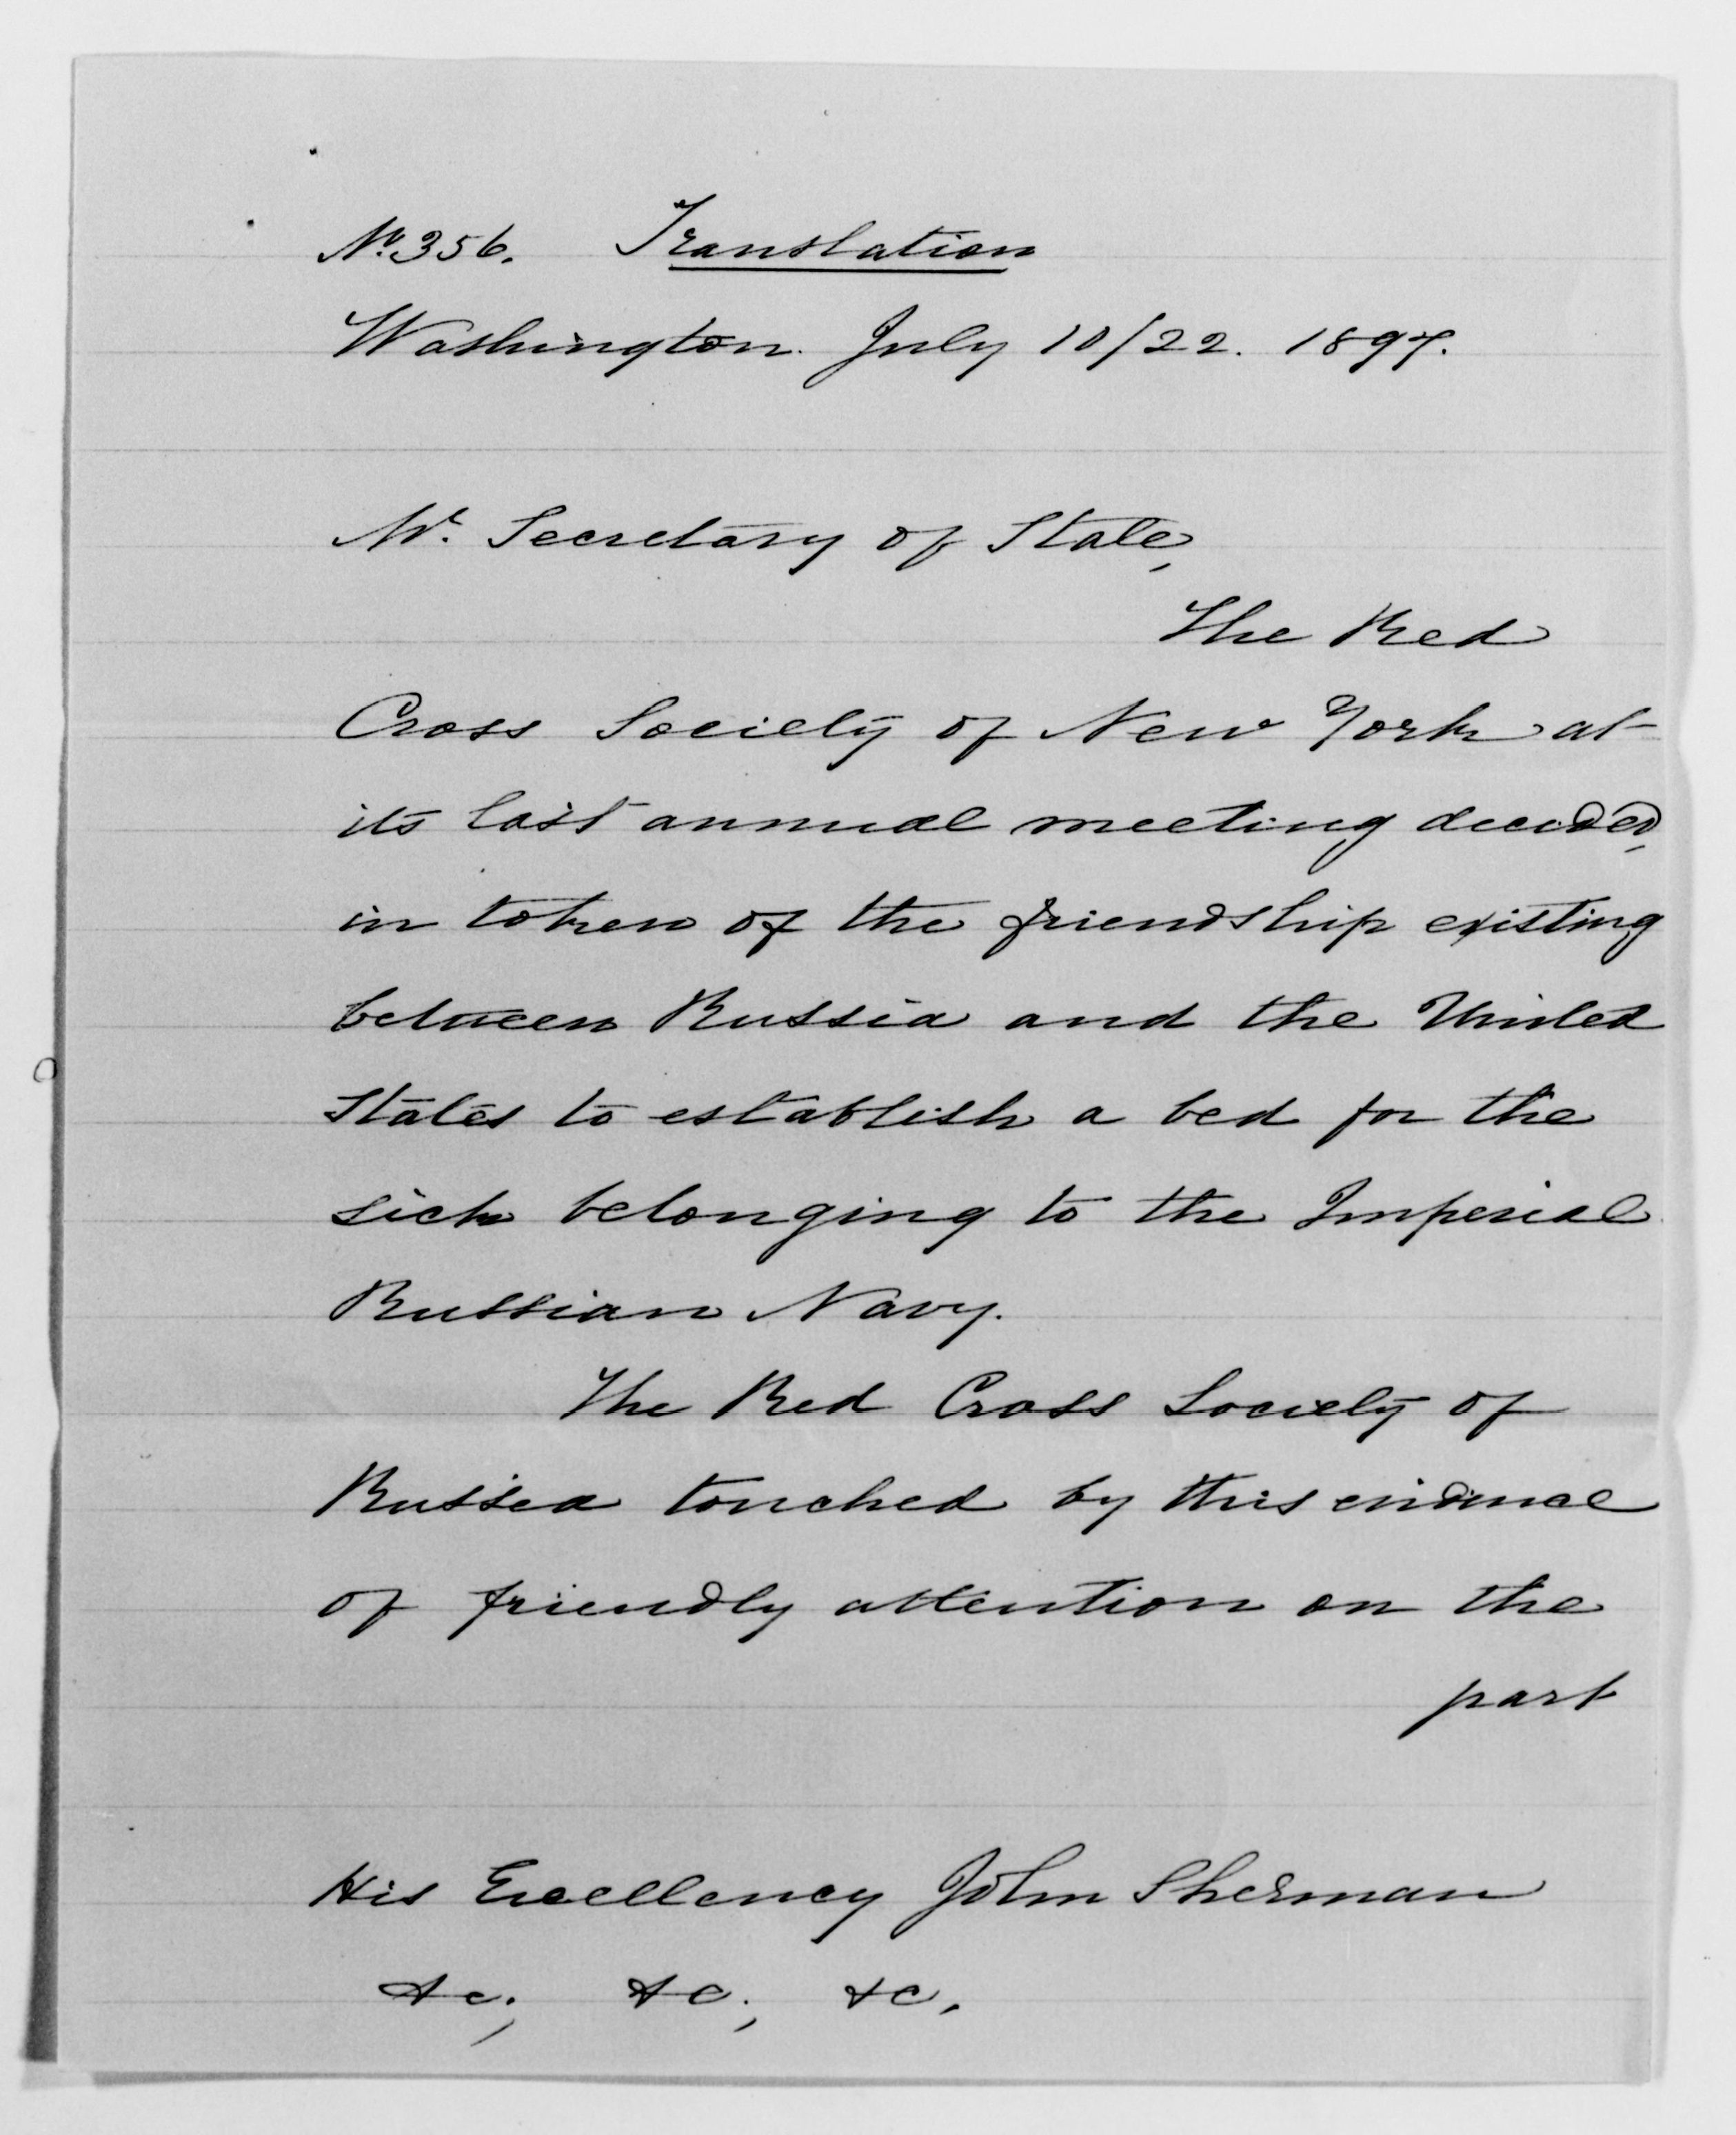 No. 356. Translation
Washington. July 10/22. 1897.
Mr. Secretary of State,
The Red
Cross Society of New York at
its last annual meeting decided,
in token of the friendship existing
between Russia and the United
States to establish a bed for the
sick belonging to the Imperial
Russian Navy.
The Red Cross Society of
Russia touched by this evidence
of friendly attention on the
part
His Excellency John Sherman
&c; &c; &c.